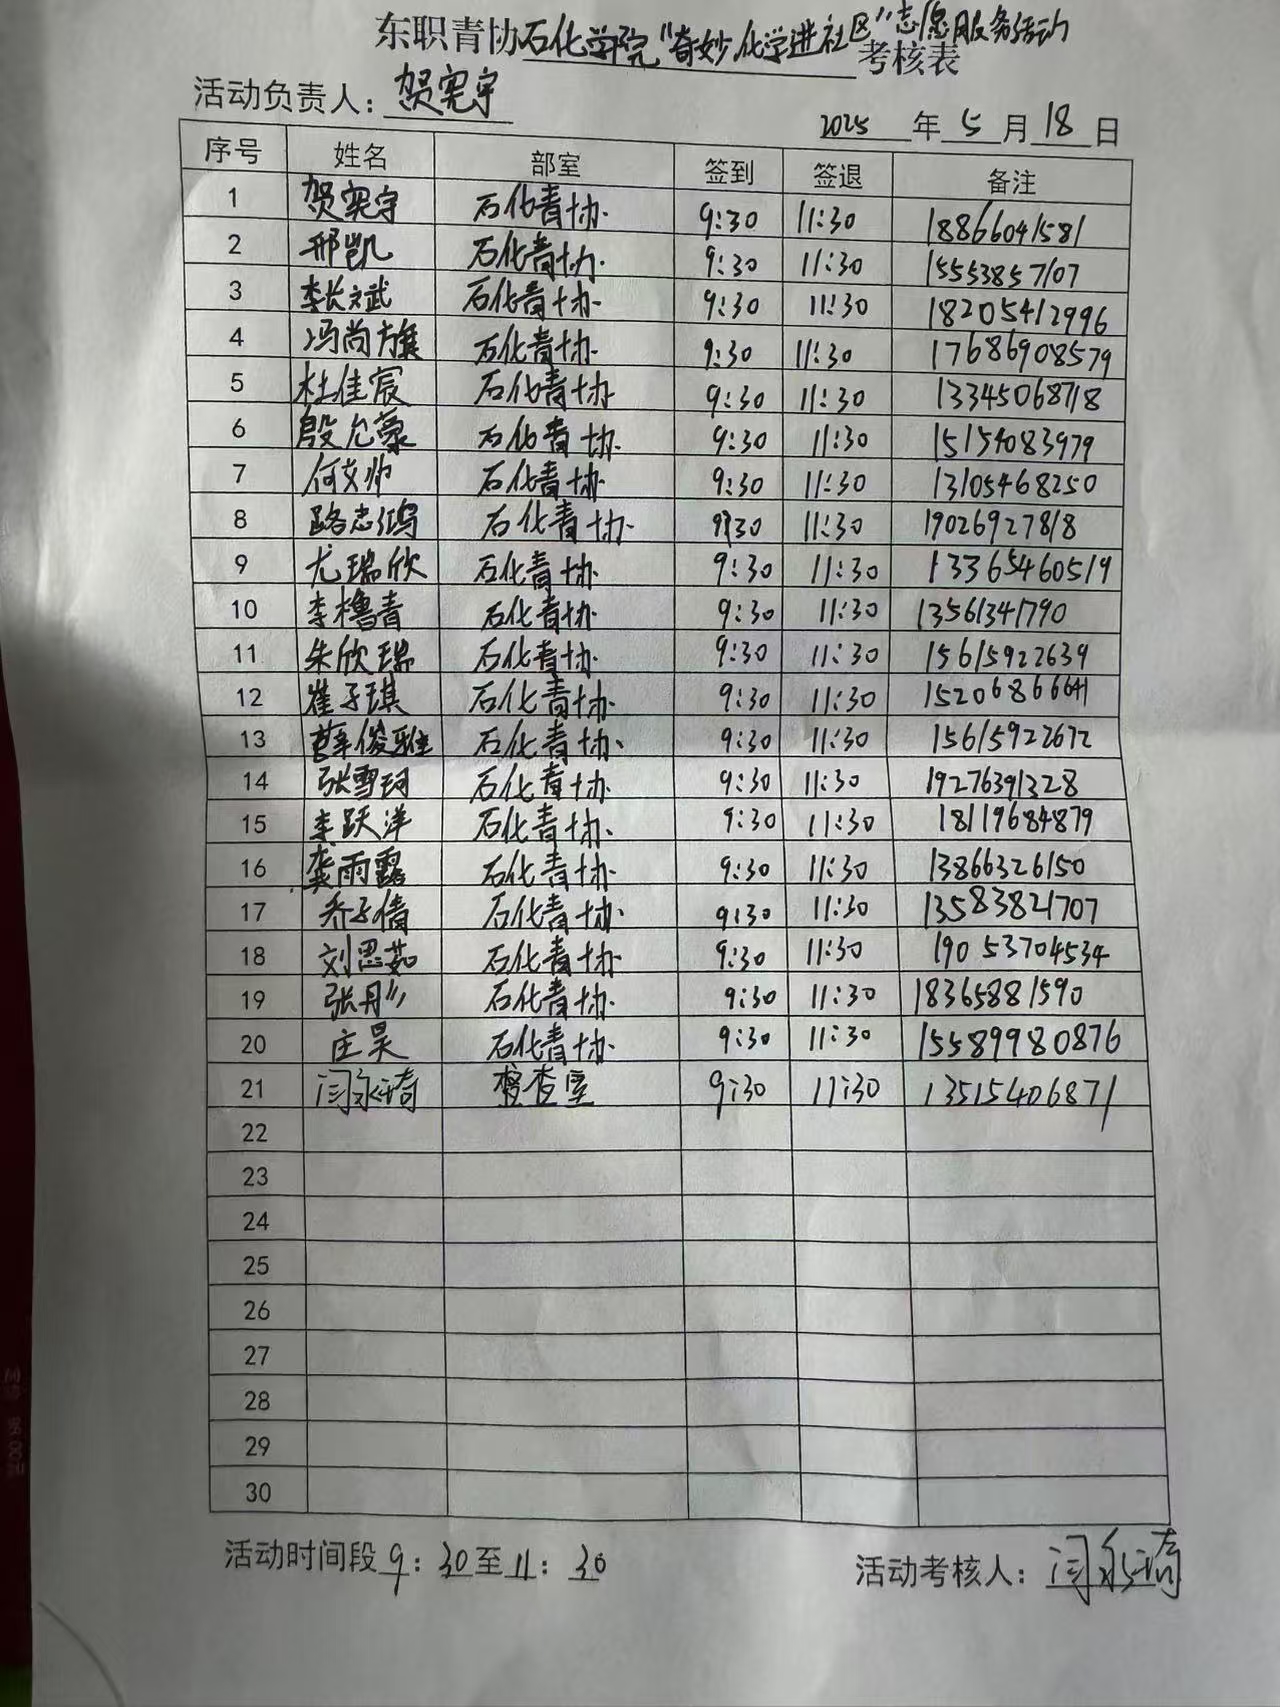 东职青协石化学院“奇妙化学进社区”志愿服务活动考核表
活动负责人：贺宪宇
2025年5月18日
序号 姓名 部室 签到 签退 备注
1 贺宪宇 石化青协 9:30 11:30 18866041581
2 邢凯 石化青协 9:30 11:30 15553857107
3 李长斌 石化青协 9:30 11:30 18205412996
4 冯尚旗 石化青协 9:30 11:30 17686908579
5 杜佳宸 石化青协 9:30 11:30 13345068718
6 殷允豪 石化青协 9:30 11:30 15154083979
7 何文帅 石化青协 9:30 11:30 13105468250
8 路志鸿 石化青协 9:30 11:30 19026927818
9 尤瑞欣 石化青协 9:30 11:30 13365460519
10 李橹青 石化青协 9:30 11:30 13561341790
11 朱欣瑞 石化青协 9:30 11:30 15615922639
12 崔子琪 石化青协 9:30 11:30 15206866641
13 薛俊雅 石化青协 9:30 11:30 15615922672
14 张雪珂 石化青协 9:30 11:30 19276391328
15 李跃洋 石化青协 9:30 11:30 18119684879
16 龚雨露 石化青协 9:30 11:30 13866326150
17 乔子倩 石化青协 9:30 11:30 13583821707
18 刘思茹 石化青协 9:30 11:30 19053704534
19 张丹彤 石化青协 9:30 11:30 18365881590
20 庄昊 石化青协 9:30 11:30 15589980876
21 闫永琦 督查室 9:30 11:30 13515406871
22
23
24
25
26
27
28
29
30
活动时间段9:30至11:30
活动考核人：闫永琦